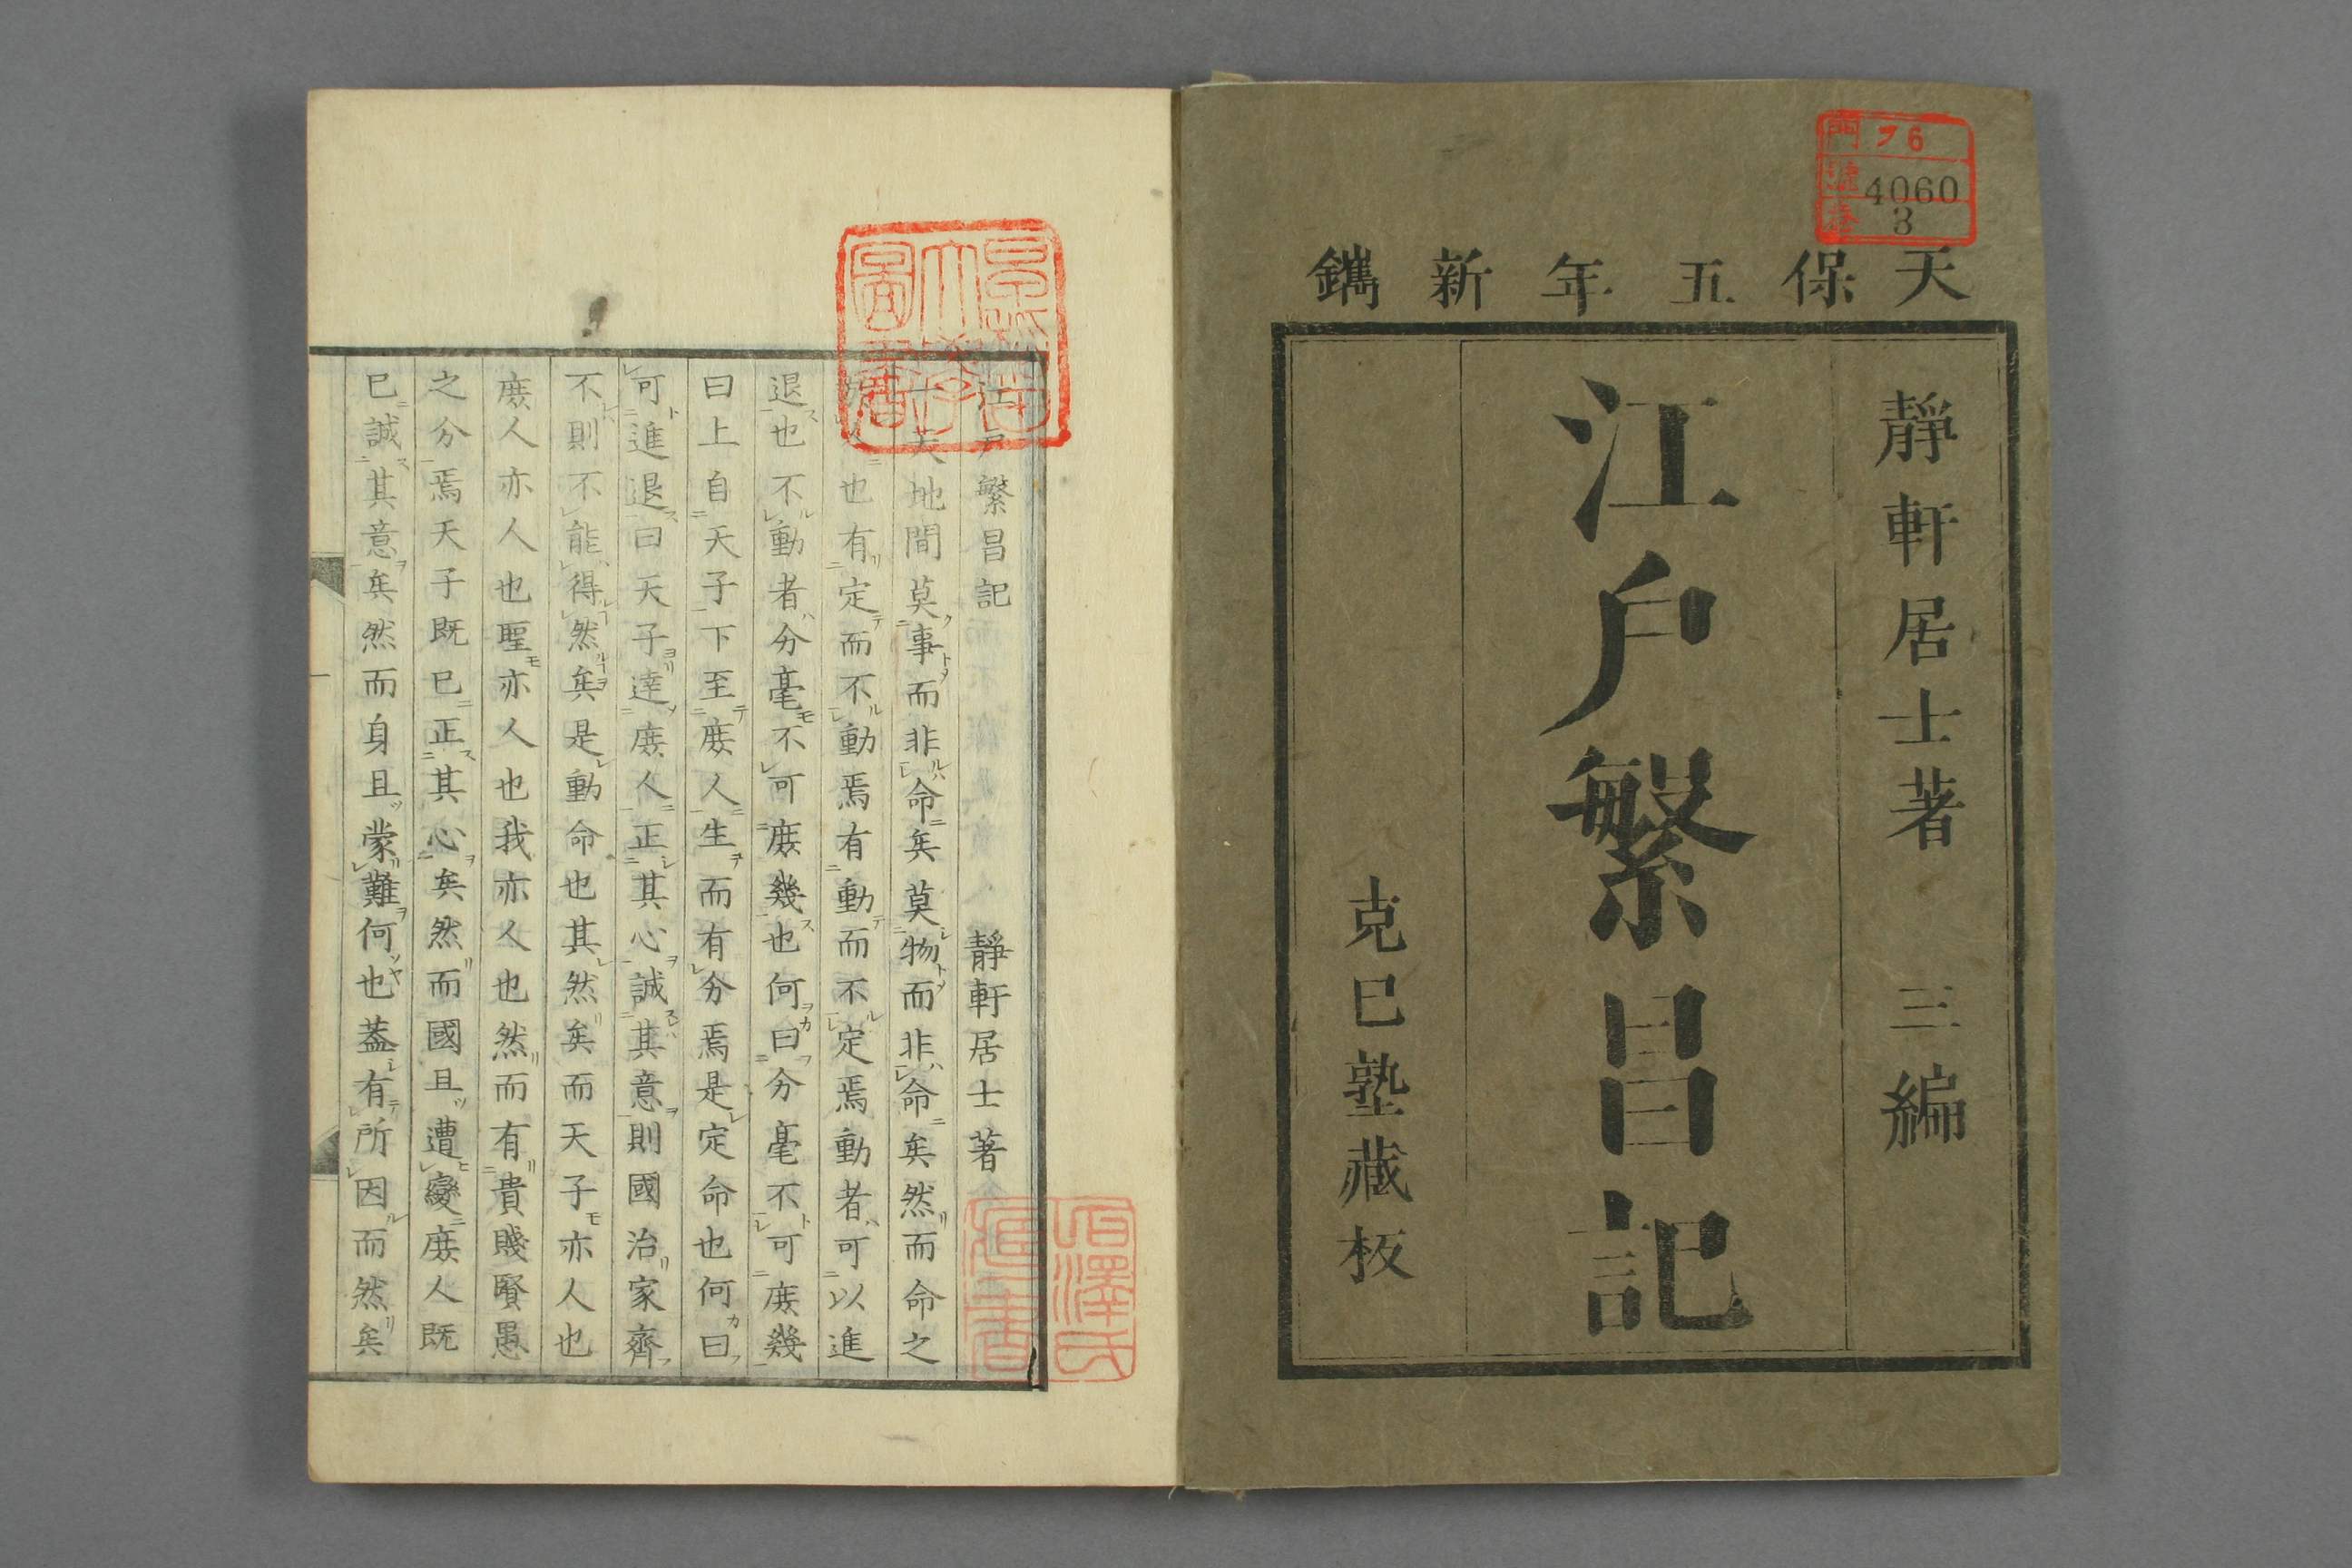 天保五年新鐫
靜軒居士著 三編
江戶繁昌記
克己塾藏板
門 フ6
號 4060
卷 3
江戶繁昌記 靜軒居士著
天地間莫事而非命矣莫物而非命矣然而命之
也有定而不動焉有動而不定焉動者可以進
退也不動者分毫不可庶幾也何曰分毫不可庶幾
曰上自天子下至庶人生而有分焉是定命也何曰
可進退曰天子達庶人正其心誠其意則國治家齊
不則不能得然矣是動命也其然矣而天子亦人也
庶人亦人也聖亦人也我亦人也然而有貴賤賢愚
之分焉天子既已正其心矣然而國且遭變庶人既
已誠其意矣然而身且蒙難何也蓋有所因而然矣